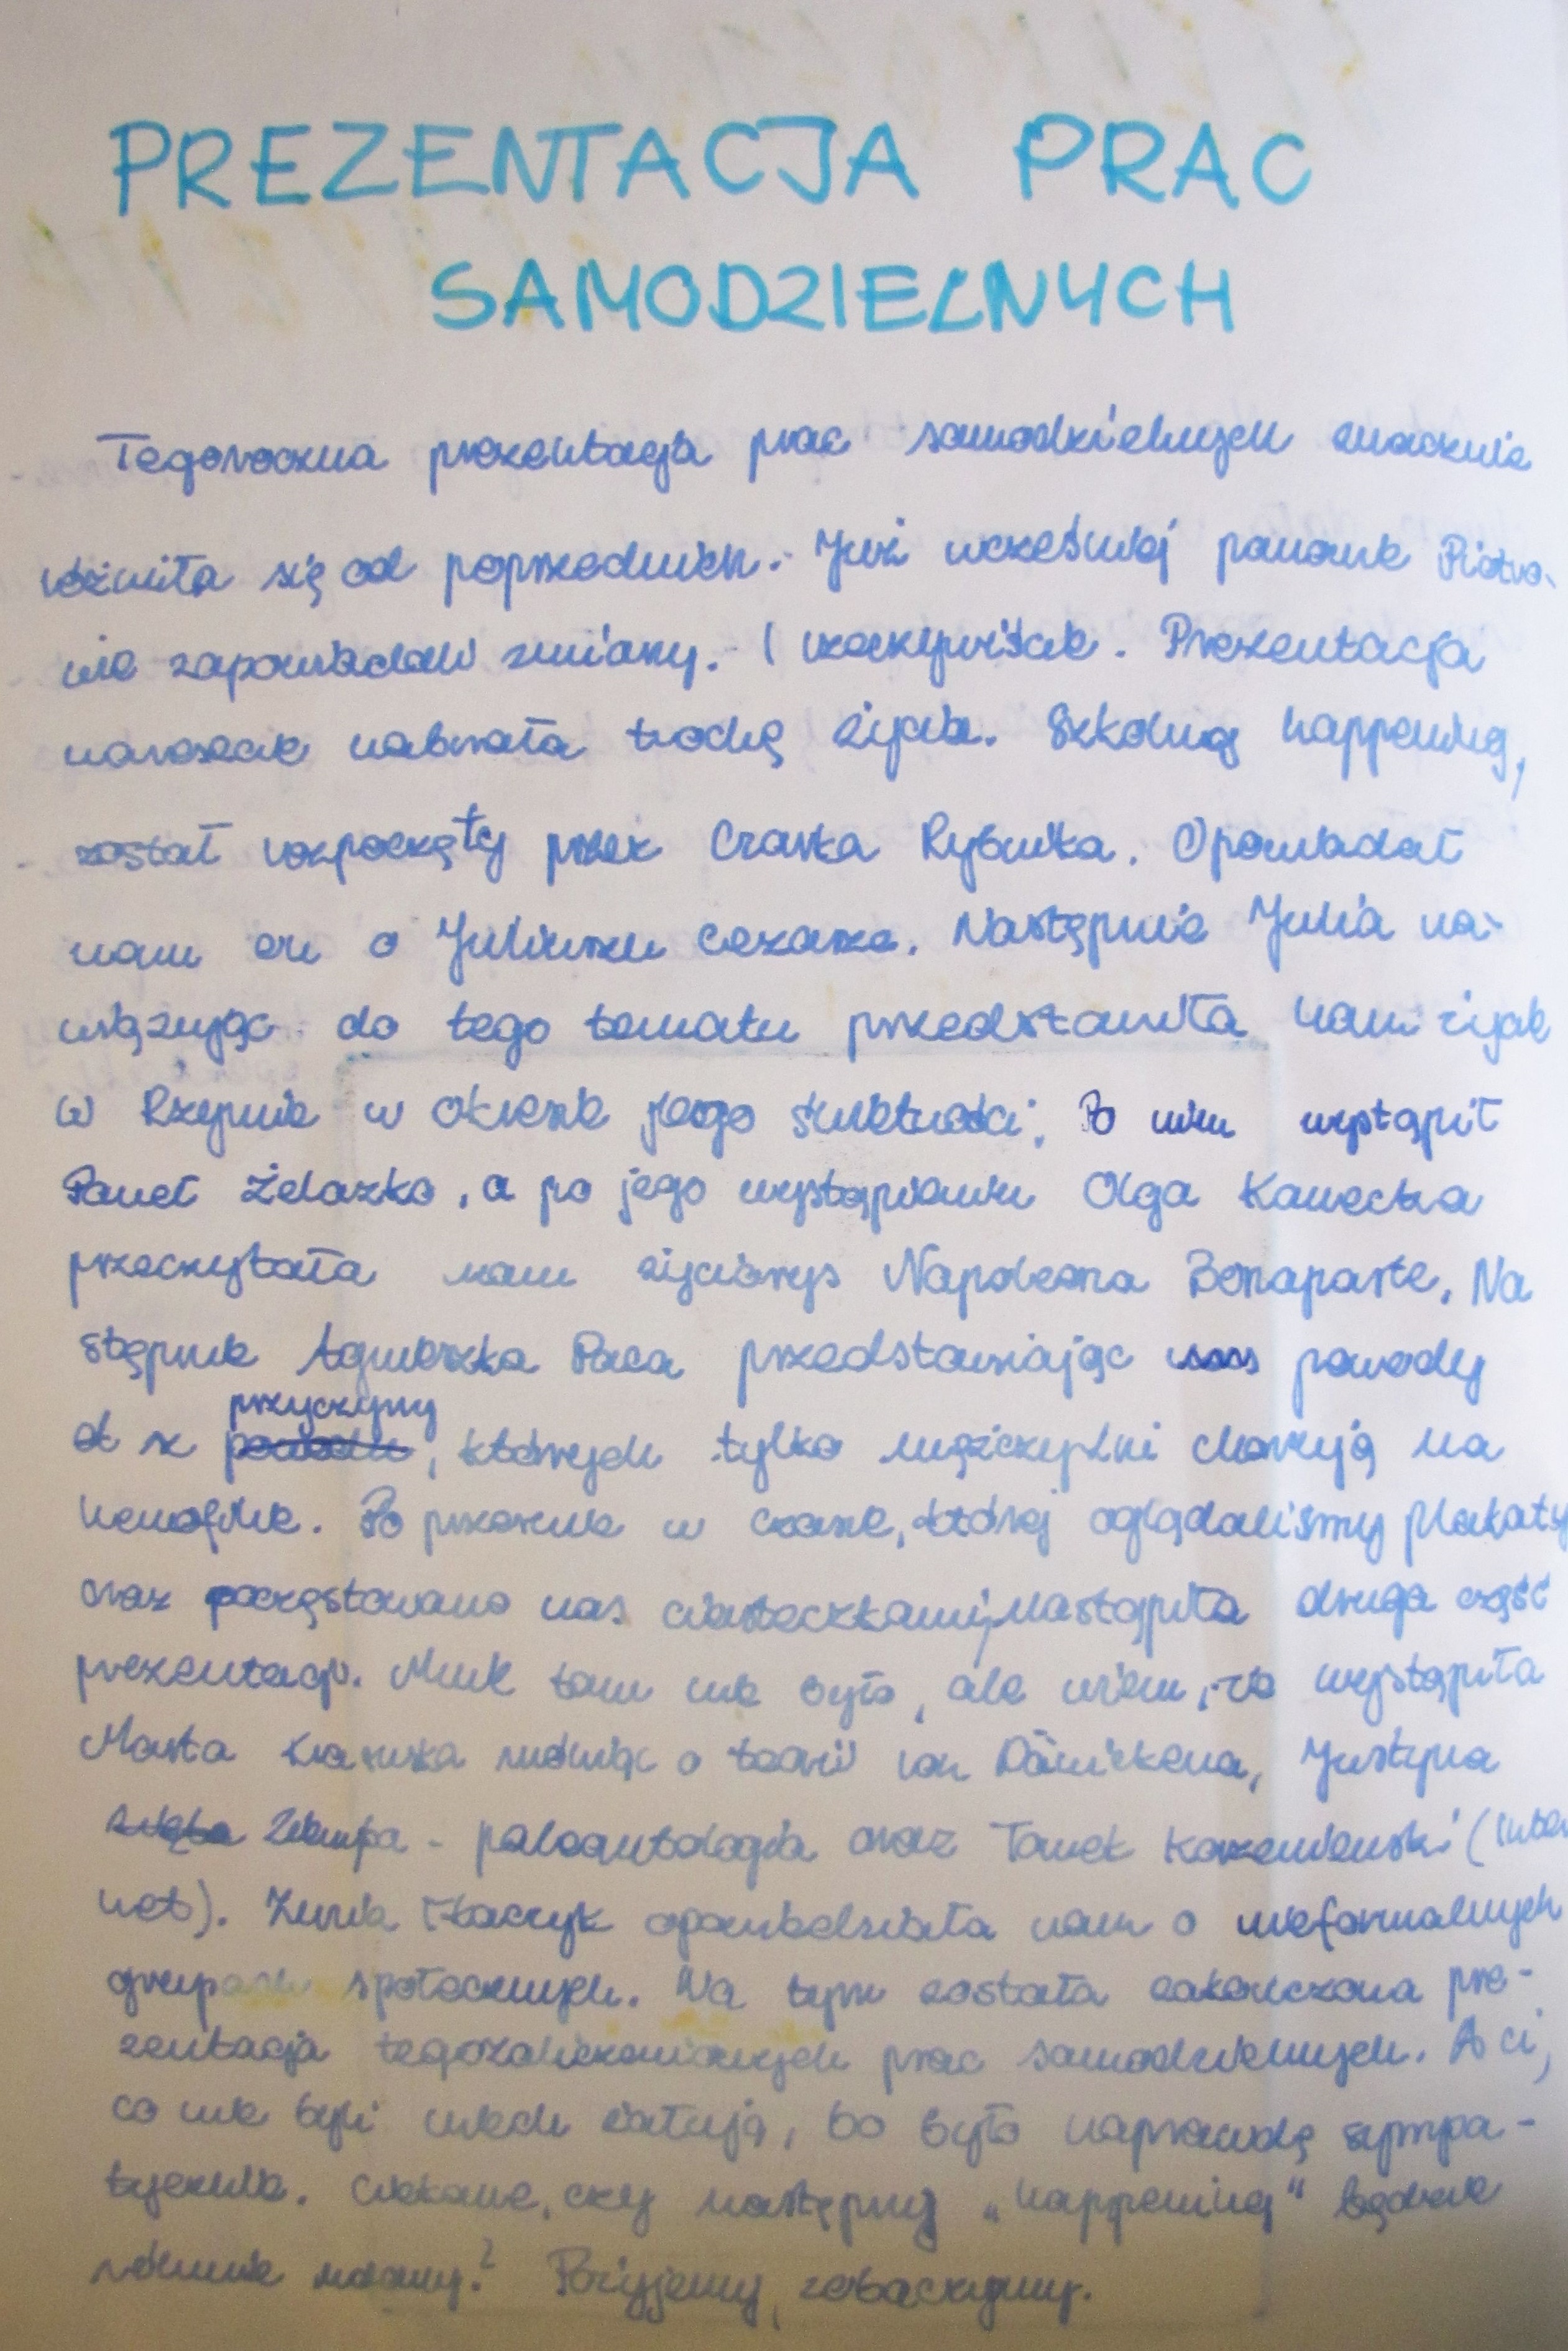 PREZENTACJA PRAC
SAMODZIELNYCH
Tegoroczna prezentacja prac samodzielnych znacznie
różniła się od poprzednich. Już wcześniej panowie Piotro-
wie zapowiadali zmiany. I rzeczywiście. Prezentacja
nareszcie nabrała trochę życia. Szkolny happening,
został rozpoczęty przez Czarka Rybnika. Opowiadał
nam on o Juliuszu Cezarze. Następnie Julia na-
wiązując do tego tematu przedstawiła nam życie
w Rzymie w okresie jego świetności. Po nim wystąpił
Paweł Żelazko, a po jego wystąpieniu Olga Kawecka
przeczytała nam życiorys Napoleona Bonaparte. Na
stępnie Agnieszka Paca przedstawiając powody
przyczyny
, których tylko mężczyźni chorują na
hemofilie. Po przerwie w czasie, której oglądaliśmy plakaty
oraz poczęstowano nas ciasteczkami, nastąpiła druga część
prezentacji. Mnie tam nie było, ale wiem, że wystąpiła
Marta mówiąc o teorii von Dänikena, Justyna
- paleontologia oraz Tomek Korzeniewski (inter
net). Zunia Tkaczyk opowiedziała nam o nieformalnych
grupach społecznych. Na tym została zakończona pre-
zentacja prac samodzielnych. A ci,
co nie byli niech żałują, bo było naprawdę sympa-
tycznie. Ciekawe, czy następny „happening" będzie
równie udany? Pożyjemy, zobaczymy.